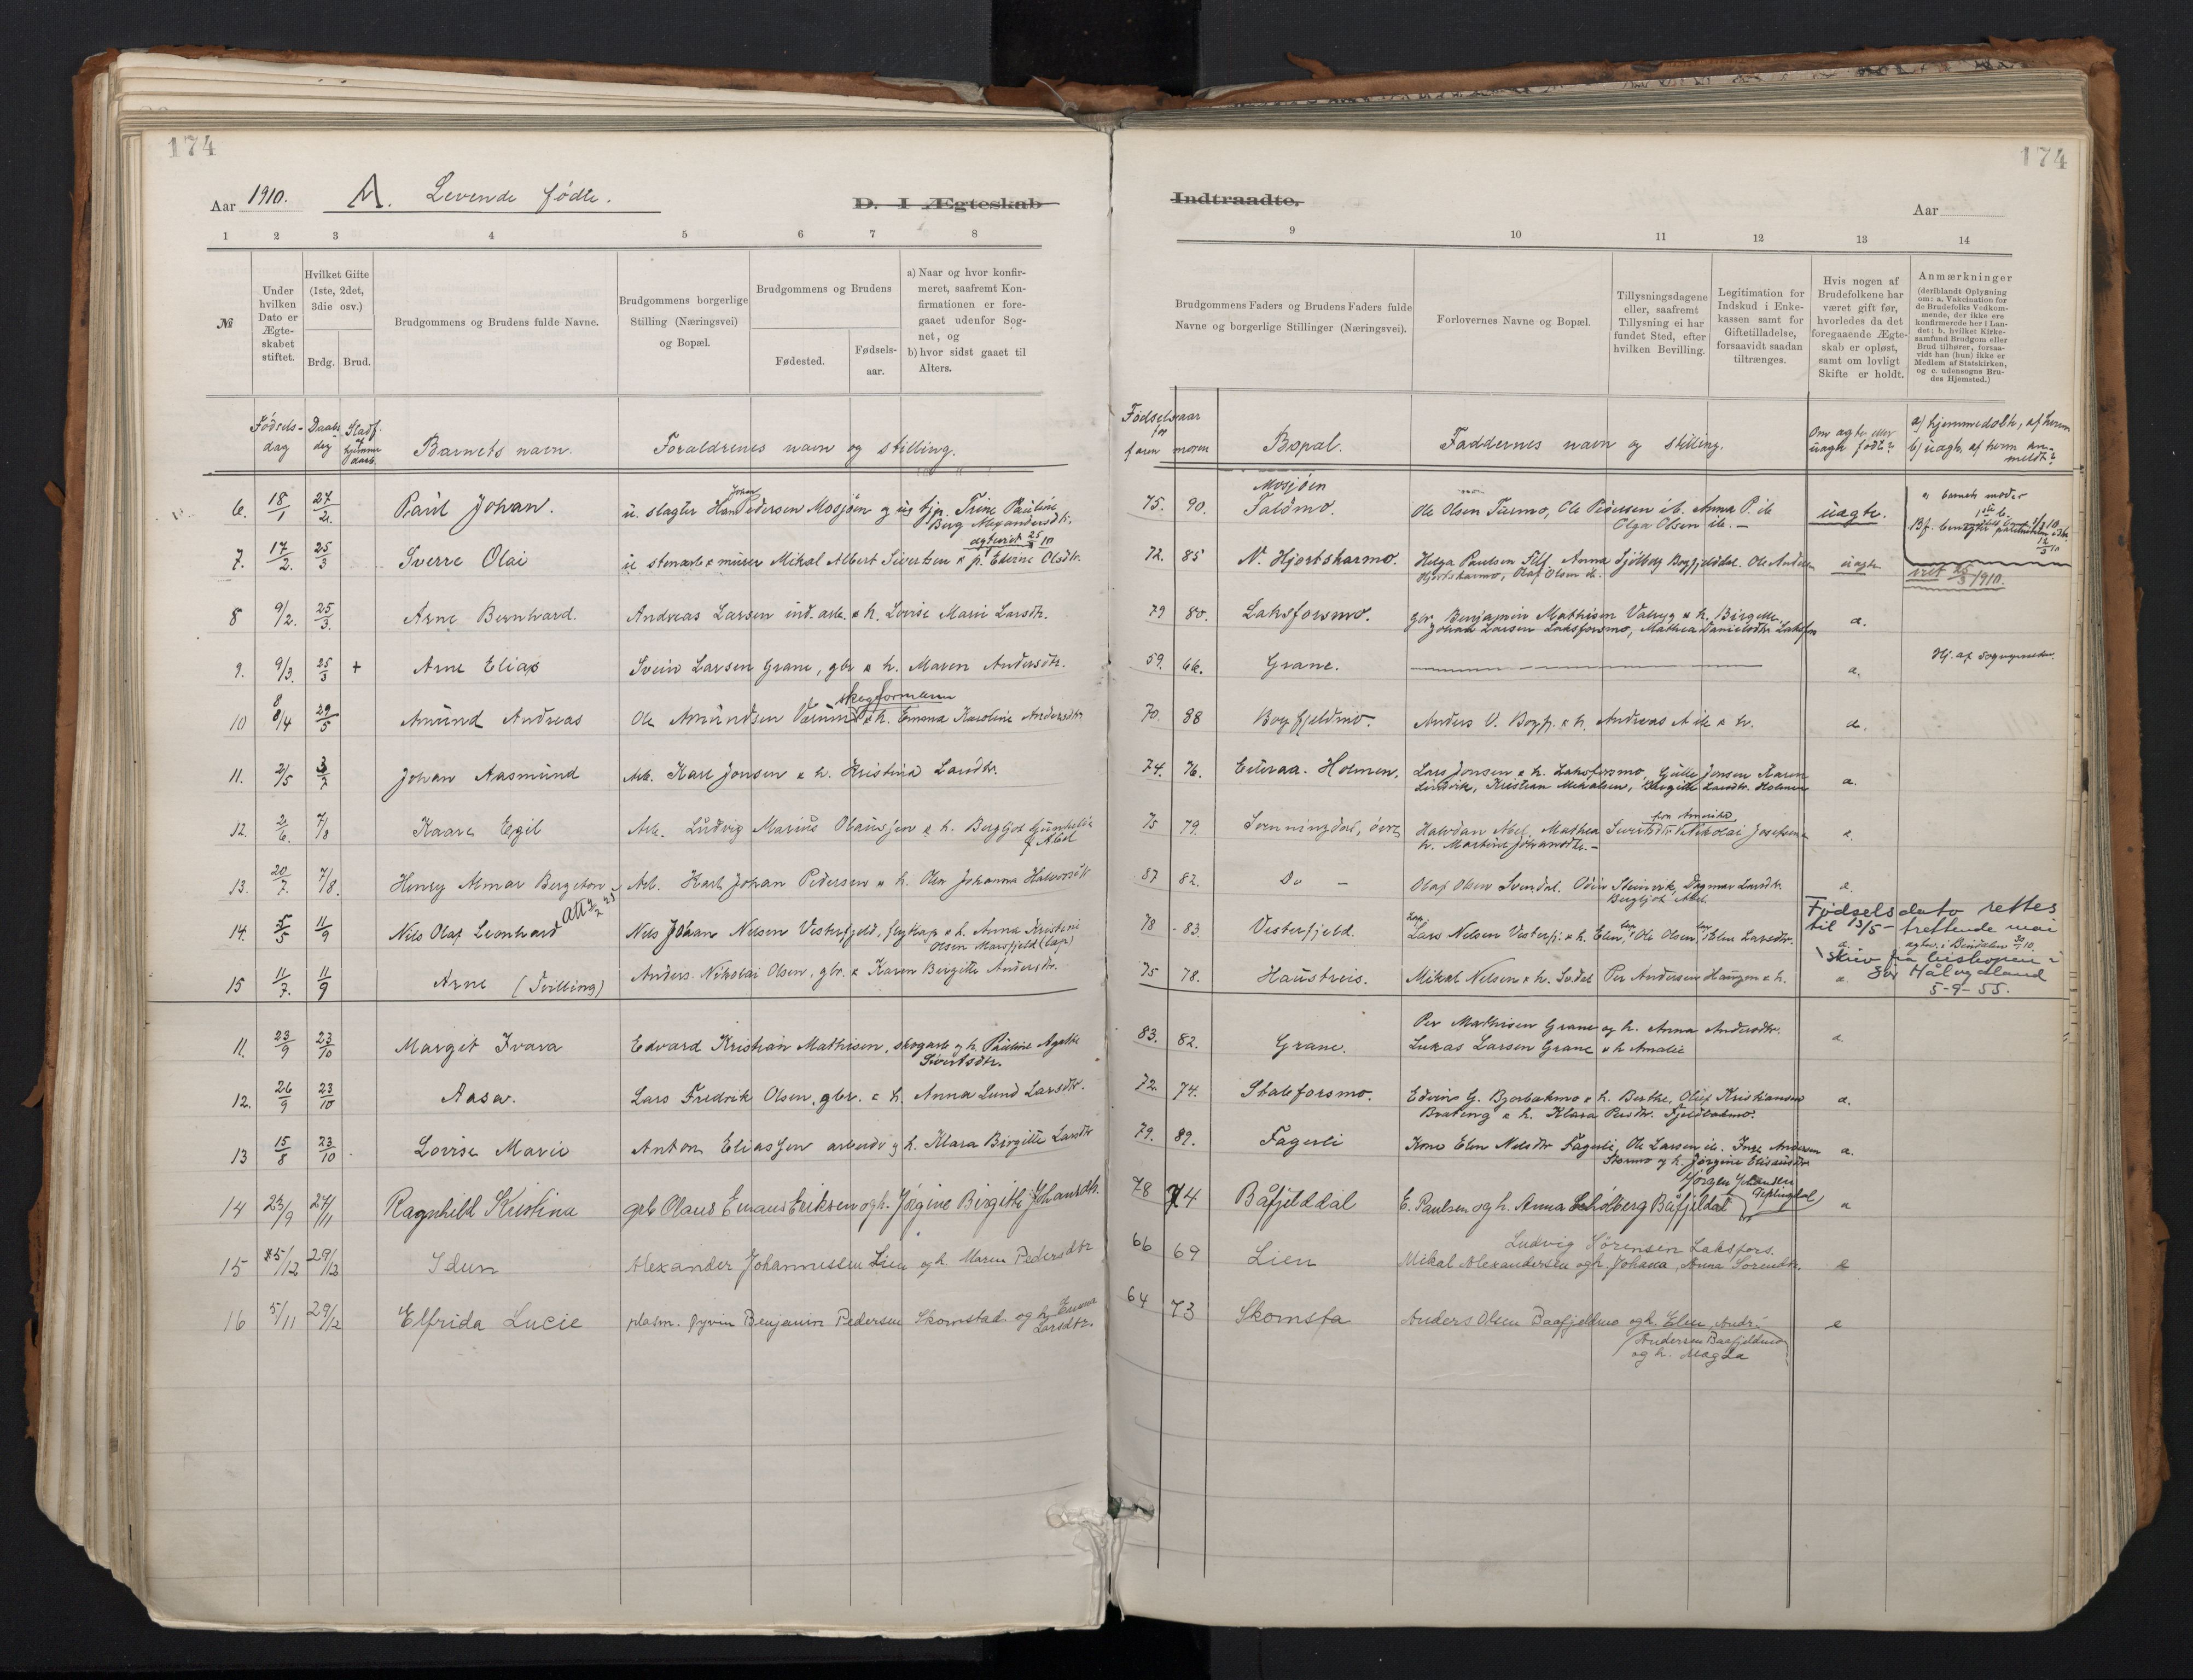 174
174
Aar 1910. A. Levende fødte.
D. I Ægteskab Indtraadte.
Aar
1 2 3 4 5 6 7 8 9 10 11 12 13 14
№
Under hvilken Dato er Ægteskabet stiftet.
Hvilket Gifte (1ste, 2det, 3die osv.)
Brdg. Brud.
Brudgommens og Brudens fulde Navne.
Brudgommens borgerlige Stilling (Næringsvei) og Bopæl.
Brudgommens og Brudens
Fødested.
Fødselsaar.
a) Naar og hvor konfirmeret, saafremt Konfirmationen er foregaaet udenfor Sognet, og
b) hvor sidst gaaet til Alters.
Brudgommens Faders og Brudens Faders fulde Navne og borgerlige Stillinger (Næringsvei).
Forlovernes Navne og Bopæl.
Tillysningsdagene eller, saafremt Tillysning ei har fundet Sted, efter hvilken Bevilling.
Legitimation for Indskud i Enkekassen samt for Giftetilladelse, forsaavidt saadan tiltrænges.
Hvis nogen af Brudefolkene har været gift før, hvorledes da det foregaaende Ægteskab er opløst, samt om lovligt Skifte er holdt.
Anmærkninger
(deriblandt Oplysning om: a. Vakcination for de Brudefolks Vedkommende, der ikke ere konfirmerede her i Landet; b. hvilket Kirkesamfund Brudgom eller Brud tilhører, forsaavidt han (hun) ikke er Medlem af Statskirken, og c. udensogns Brudes Hjemsted.)
Fødselsdag Daabsdag Stadf. af hjemmedaab Barnets navn. Forældrenes navn og stilling. Fødselsaar for faren moren Bopæl. Faddernes navn og stilling. Om ægte eller uægte født? a/ hjemmedøbt, af hvem b/ uægte, af hvem anmeldt?
6. 18/1 27/2 Paul Johan. u. slagter Hans Johan Pedersen Mosjøen og ug tjp. Trine Pauline Berg Alexandersdtr. 75. 90. Mosjøen Faldmo. Ole Olsen Turmo, Ole Pedersen ib. Anna P. ib Olga Olsen ib. uægte. a) barnets moder
7. 17/2. 25/3 Sverre Olai u stenarb & murer Mikal Albert Sivertsen & p. Ederne Olsdtr. ægteviet 25/3 10 72. 85 N. Hjortskarmo. Helga Paulsen Anna Sjølberg Bogfjelddal. Ole Andersen Hjortskarmo, Olaf Olsen ib. uægte viet 25/3 1910.
8 9/2. 25/3. Arne Bernhard. Andreas Larsen ind. arb. & h. Lovise Marie Larsdtr. 79 80. Laksforsmo. gbr. Benjamin Mathisen & h. Birgitte Johan Larsen Laksforsmo, Mathea Danielsdtr. Laksfor æ.
9. 9/3. 25/3 + Arne Elias Svein Larsen Grane, gbr & h. Maren Andersdtr. 59. 66. Grane. æ. Hj. af sognepresten.
10 8/4 29/5 Amund Andreas Ole Amundsen skogformann & h. Emma Karoline Andersdtr. 70. 88 Bogfjeldmo. Anders O. Bogfj. & h. Andreas A ib & h. æ.
11. 2/5 3/7 Johan Aasmund Arb. Karl Jonsen & h. Kristina Larsdtr. 74. 76. Eiteraa. Holmen. Lars Jonsen & h. Laksforsmo, Jonsen Karen Kristian Mikalsen, Birgitte Larsdtr. Holmen æ.
12. 2/6. 7/8 Kaare Egil Arb. Ludvig Marius Olaussen & h. Bergljot Gunhilda f. Abel 75 79. Svenningdal, øvre Halvdan Abel, Mathea Sivertsdtr. Nikolai Josefsen fra Amerika h. Martine Johansdtr. æ.
13. 20/7. 7/8. Henry Almar Bergeton Arb. Karl Johan Pedersen & h. Olea Johanna Halvorsdtr 87 82. Do Olaf Olsen Svendal. Odin Steinvik, Dagmar Larsdtr. Bergljot Abel. æ.
14. 5/5 11/9 Nils Olaf Leonhard Nils Johan Nilsen Vesterfjeld, flytlap & h. Anna Kristine Olsen Marsfjeld (lap) 78 83. Vesterfjeld. Lars Nilsen Vesterfj. & h. Elen, Ole Olsen, Elen Larsdtr. æ. Fødselsdato rettes til 13/5 – trettende mai
Skriv fra biskopen i Sør Hålogaland
5-9-55.
15 11/7. 11/9 Arne (Tvilling) Anders Nikolai Olsen, gbr. & Karen Birgitte Andersdtr. 75 78. Haustreis. Mikal Nilsen & h. Sv.dal Per Andersen Haugen & h. æ.
11. 23/9 23/10 Margit Ivara Edvard Kristian Mathisen, skogarb og h Pauline Agathe Sivertsdtr. 83. 82. Grane. Per Mathisen Grane og h. Anna Andersdtr. Lukas Larsen Grane & h Amalie æ.
12. 26/9 23/10 Aasa. Lars Fredrik Olsen, gbr. & h. Anna Lund Larsdtr. 72. 74. Stalforsmo. Edvin G. Bjorbækmo & h. Berthe, Oluf Kristiansen Brateng & h. Klara Persdtr. Fjeldbækmo. æ.
13 15/8 23/10 Lovise Marie Anton Eliassen arbeider og h. Klara Birgitte Larsdtr 79. 89. Fagerli Kone Elen Nilsdtr Fagerli, Ole Larsen ib. Andersen Stormo og h. Jørgine Eliasdtr æ.
14 23/9 27/11 Ragnhild Kristina gbr Olaus Emaus Eriksen og h. Jørgine Birgithe Johansdtr. 78 74 Båfjelddal E. Paulsen og h. Anna Sjølberg Båfjeldal Jørgen Johansen æ
15 25/12 29/12 Idun Alexander Johannessen Lien og h. Maren Pedersdtr 66 69 Lien Ludvig Sørensen Laksfors. Mikal Alexandersen og h. Johana, Anna Sørensdtr. e
16 5/11 29/12 Elfrida Lucie plasm. Øyvin Benjamin Pedersen Skomstad og h Emma Larsdtr. 64 73 Skomsta Anders Olsen Baafjeldmo og h. Elen, Andr. Andersen Baafjeldmo og h. Magda e